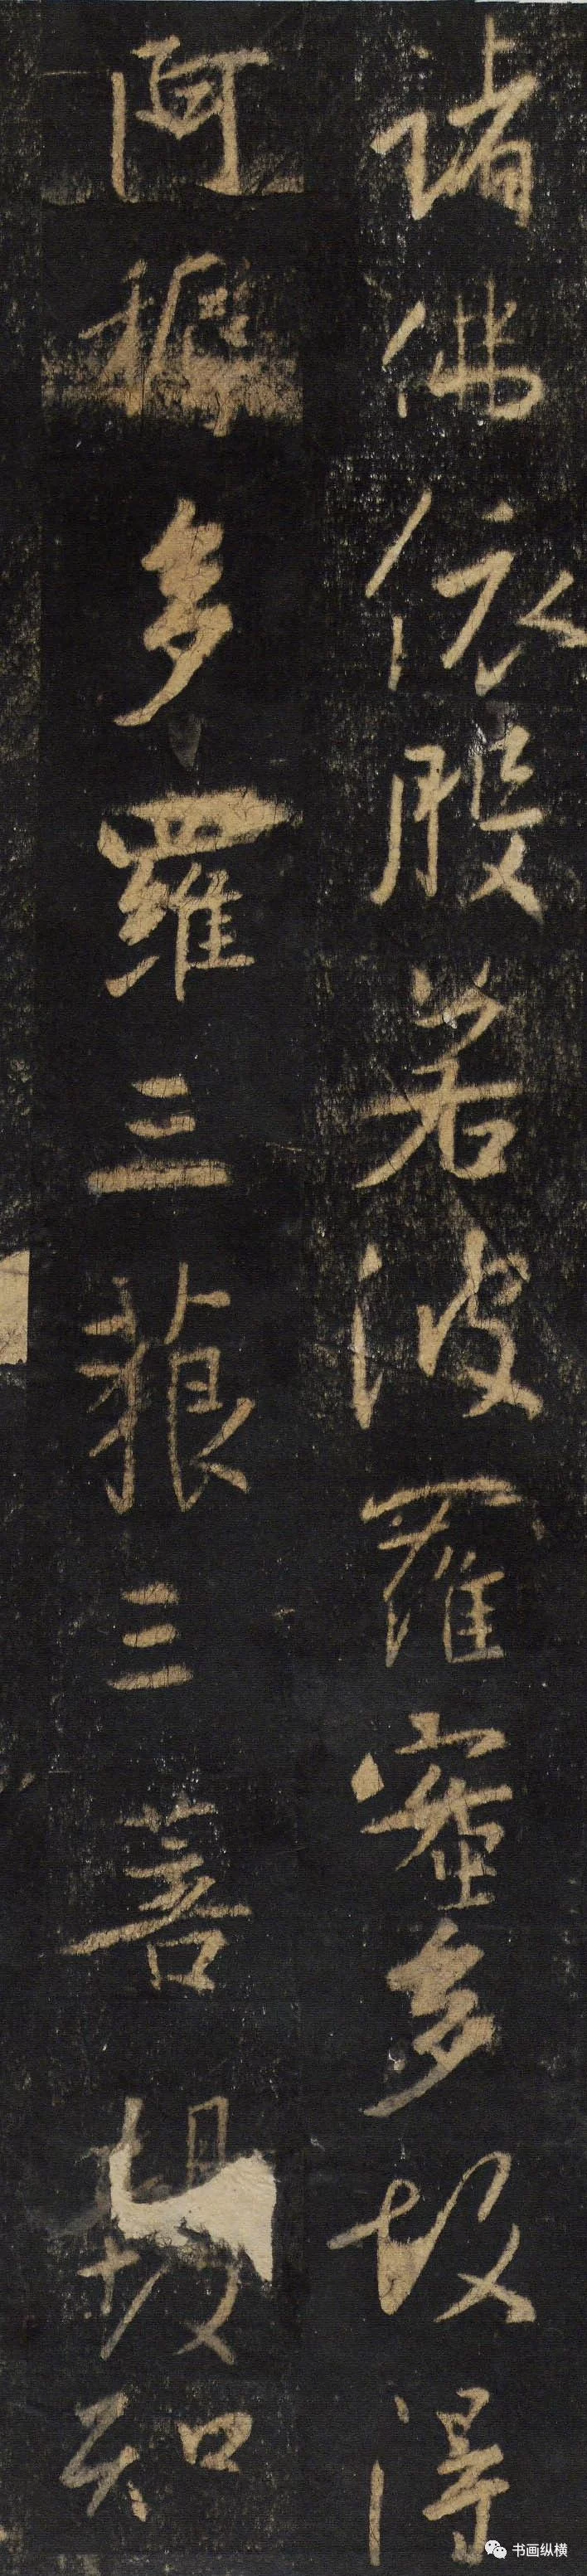 諸佛依般若波羅蜜多故得
阿耨多羅三藐三菩提故知
书画纵横